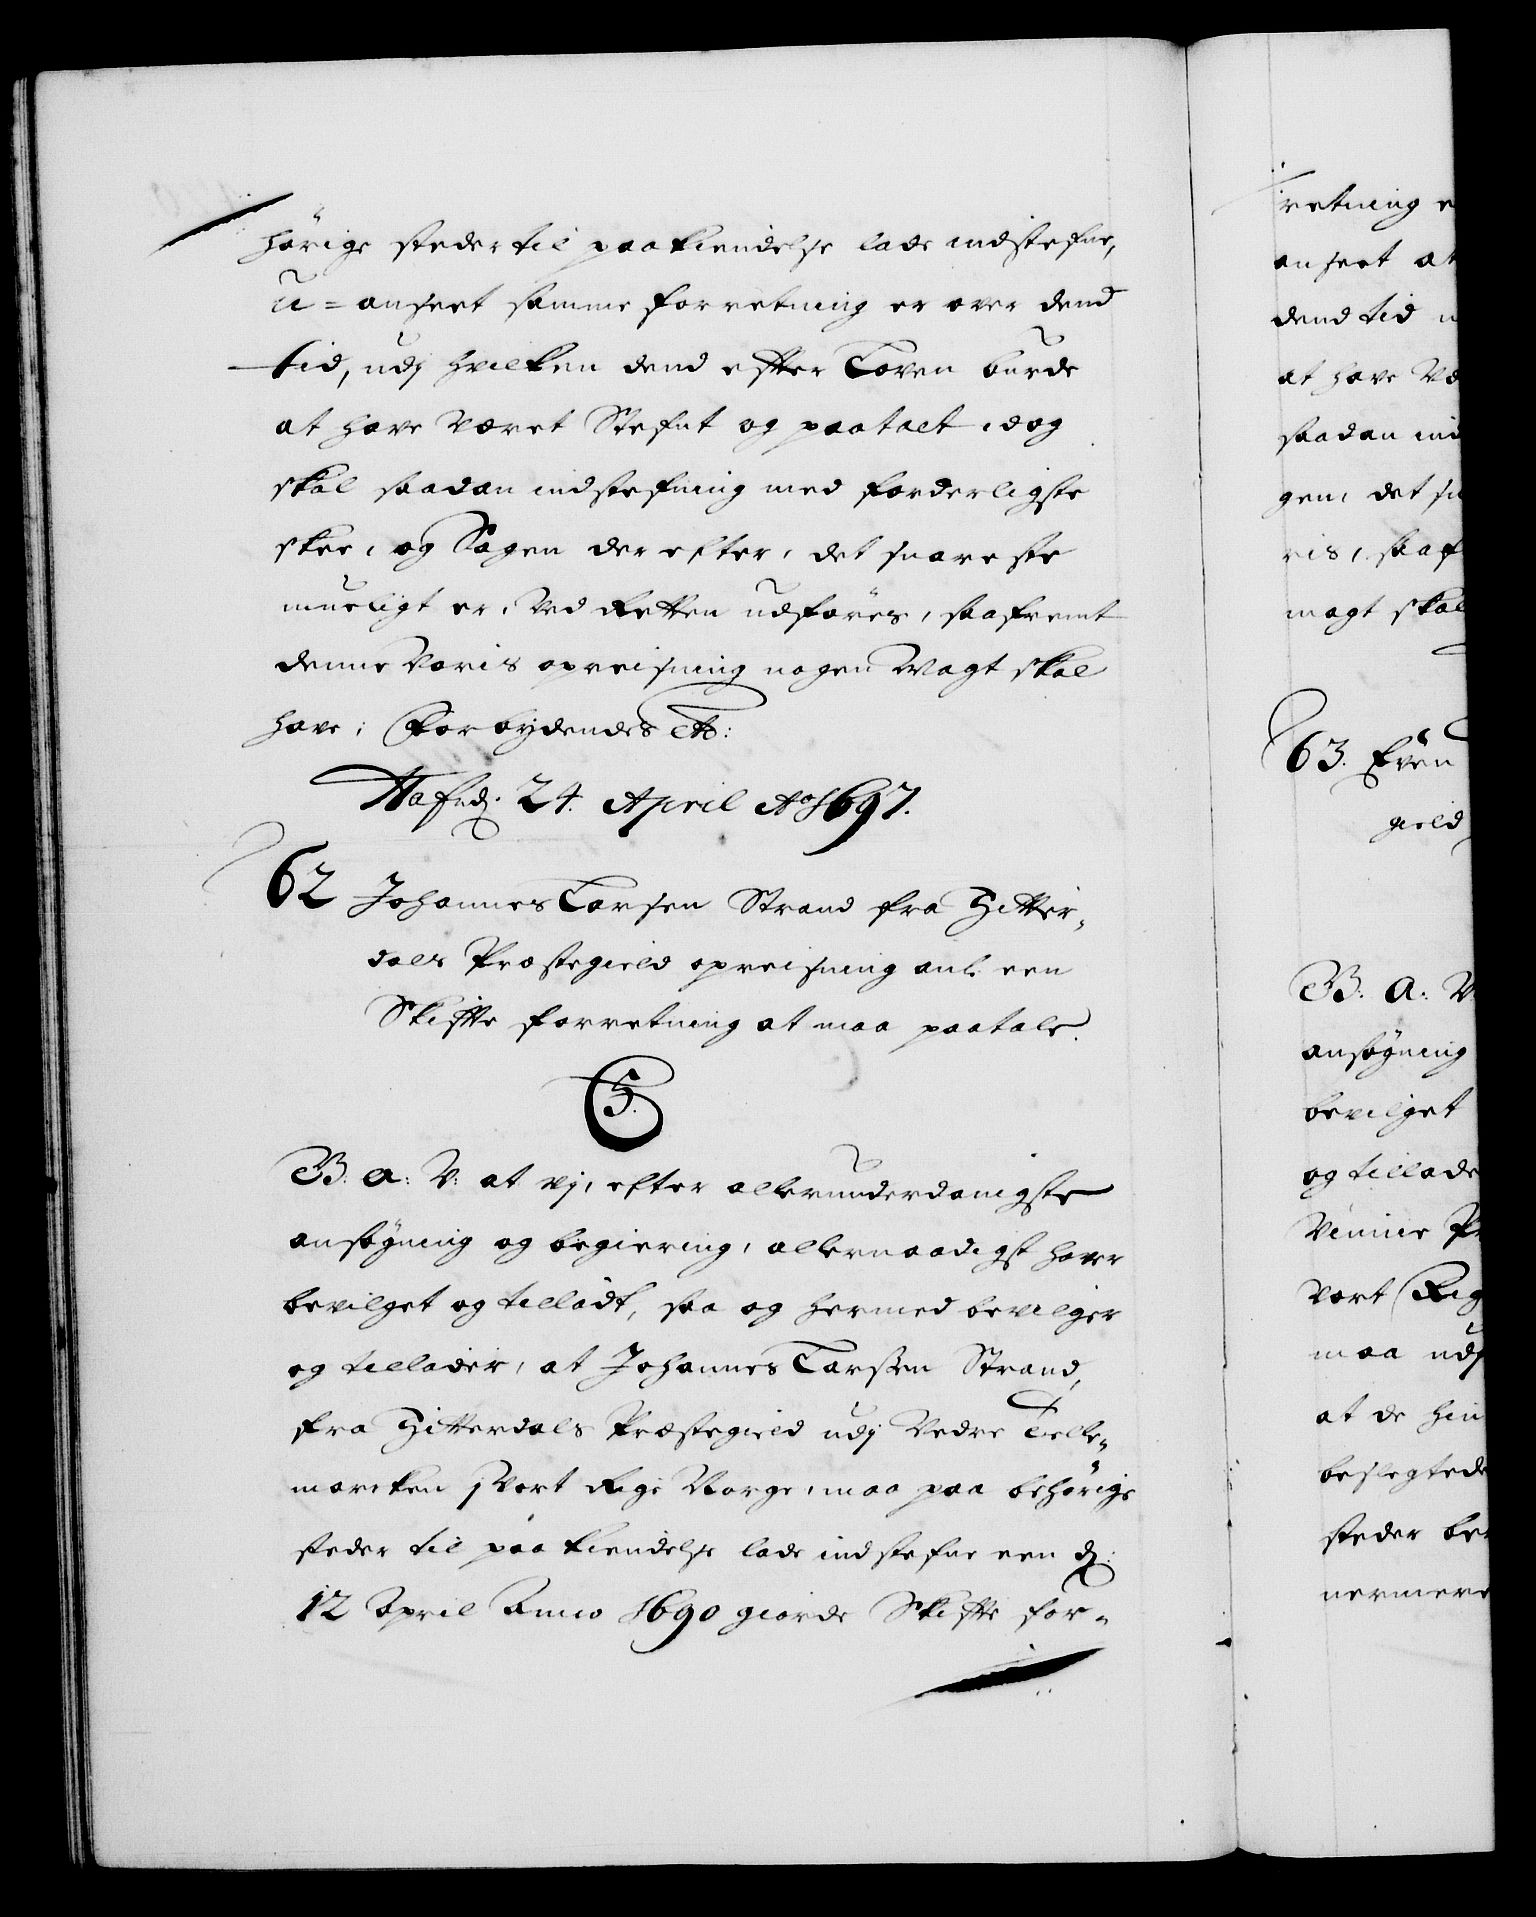 hörige steder til paakiendelse lade indstefne,
u=anseet samme forretning er over dend
tid, udj hvilken dend efter Loven burde
at have været Stefnt og paatalt, dog
skal saadan indstefning med forderligste
skee, og Sagen der efter, det snareste
mueligt er, Ved Retten udföres, saafremt
denne Voris opreisning nogen Magt skal
have; Forbydendes etc:
Hafnd. 24. April Ao 1697.
62 Johannes Larsen Strand fra Hitter-
dals Præstegield opreisning anl. een
Skiffte forretning at maa paatale.
C5.
B. A: V: at vj, efter allerunderdanigste
ansögning og begiering, allernaadigst haver
bevilget og tilladt, saa og hermed bevilger
og tillader, at Johannes Larssen Strand,
fra Hitterdals Præstegield udj Nedre Telle-
marcken j Vort Rige Norge, maa paa behörige
steder til paakiendelse lade indstefne een d:
12 April Anno 1690 giorde Skiffte for-
retning
anseet at
dend tid
at have
saadan ind
gen, det
ris, saaf
magt skal
63. Even
gield
B. A: V:
ansögning
bevilget
og tillade
Vinnie
Vort Rig
maa udj
at de hin
beslegtede
steder
nermere